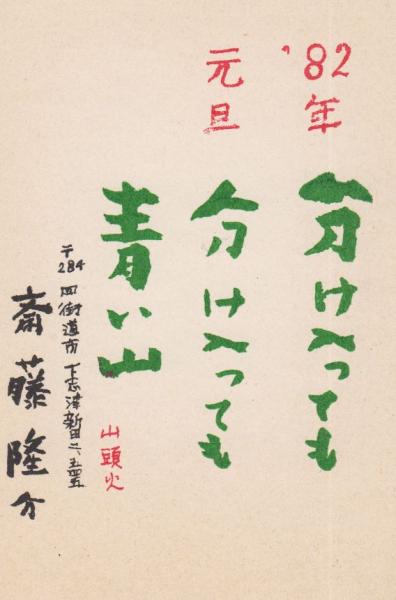 '82年
元旦
分け入っても
分け入っても
青い山
山頭火
〒284 四街道市下志津新田二、五四五
斎藤隆介